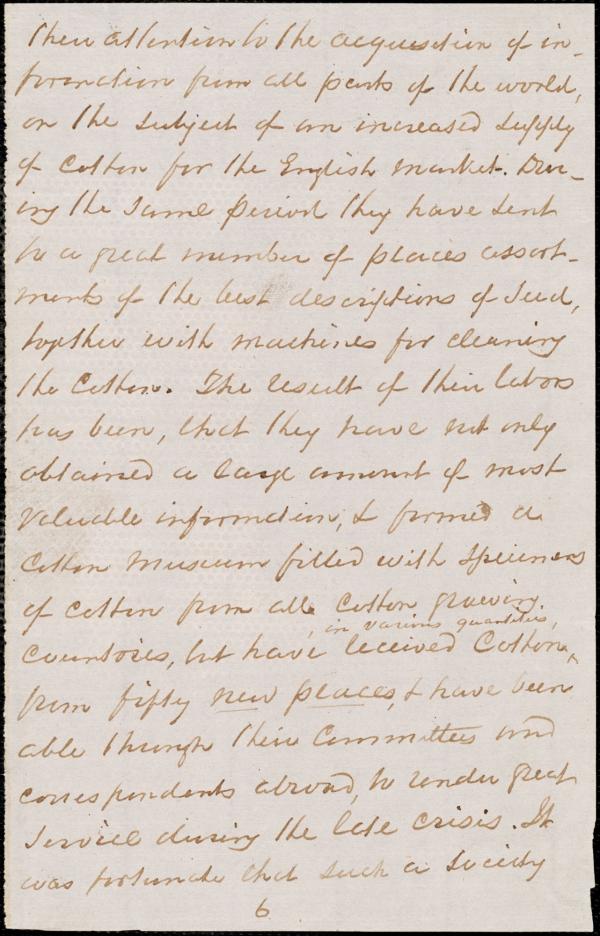 their attention to the acquisition of in-
formation from all parts of the world,
on the subject of an increased supply
of cotton for the English market. Dur-
ing the same period they have sent
to a great number of places assort-
ments of the best descriptions of seed,
together with machines for cleaning
the cotton. The result of their labors
has been, that they have not only
obtained a large amount of most
valuable information, & formed a
Cotton Museum filled with specimens
of cotton from all cotton growing
in various quantities,
countries, but have received cotton
from fifty new places, & have been
able through their Committees and
correspondents abroad, to render great
service during the late crisis. It
was fortunate that such a Society
6